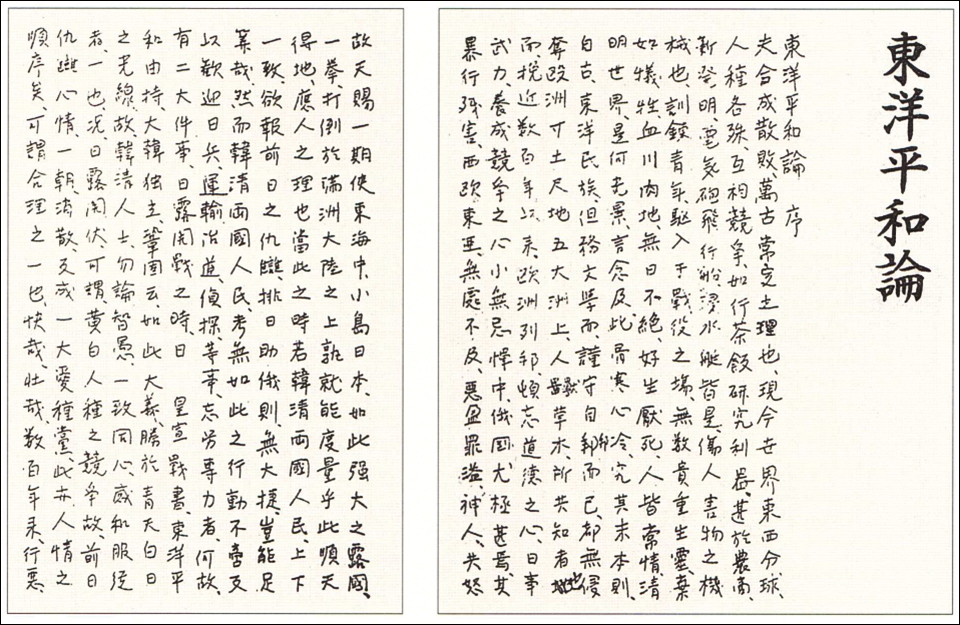 東洋平和論
東洋平和論 序
夫合成散敗、萬古常定之理也、現今世界東西分球、
人種各殊、互相競爭、如行茶飯、研究利器、甚於農商、
新發明、電氣砲飛行船浸水艇皆是、傷人害物之機
械也、訓鍊青年、驅入于戰役之塲、無數貴重生靈棄
如犧牲、血川肉地、無日不絶、好生厭死、人皆常情、清
明世界、是何光景、言念及此、骨寒心冷、究其末本則
自古、東洋民族、但務文學而、謹守自邦而已、都無侵
奪歐洲寸土尺地、五大洲上、人獸草木、所共知者也
而挽近數百年以來、歐洲列邦、頓忘道德之心、日事
武力、養成競爭之心、小無忌憚中、俄國尤極甚焉、其
暴行殘害、西歐東亞、無處不及、惡盈罪溢、神人、共怒
故天賜一期使東海中、小島日本、如此强大之露國、
一拳、打倒於滿洲大陸之上、孰就能度量乎、此順天
得地、應人之理也、當此之時、若韓清兩國人民、上下
一致、欲報前日之仇讎、排日助俄則、無大捷、豈能足
筭哉、然而韓清兩國人民、考無如此之行動、不啻、反
以歡迎日兵、運輸治道、偵探、等事、忘勞專力者、何故、
有二大件事、日露開戰之時、日 皇宣戰書、東洋平
和由持、大韓独立、鞏固云、如此大義、勝於青天白日
之光線、故韓清人士、勿論智愚、一致同心、感和服從
者、一也、況、日露開伏、可謂黃白人種之競爭故、前日
仇讎心情、一朝消散、反成一大愛種黨、此亦人情之
順序矣、可謂合理之一也、快哉、壯哉、數百年來、行惡、